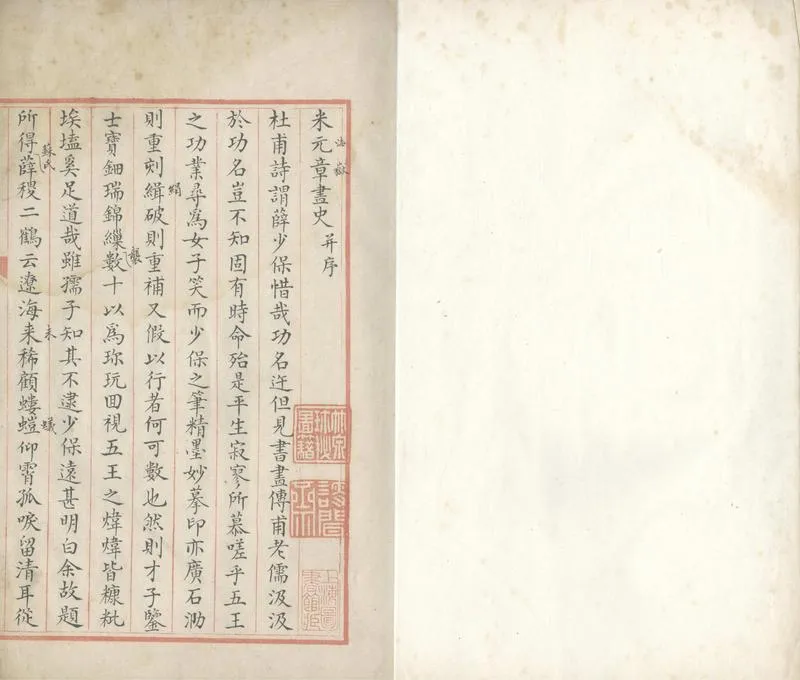 海嶽
米元章畫史 并序
杜甫詩謂薛少保惜哉功名迕但見書畫傳甫老儒汲汲
於功名豈不知固有時命殆是平生寂寥所慕嗟乎五王
之功業尋爲女子笑而少保之筆精墨妙摹印亦廣石泐
絹
則重刻緝破則重補又假以行者何可數也然則才子鑒
襲
士寶鈿瑞錦繅數十以爲珎玩囬視五王之煒煒皆糠粃
埃壒奚足道哉雖孺子知其不逮少保遠甚明白余故題
蘇氏 未 蟻
所得薛稷二鶴云遼海来稀顧螻螘仰霄孤唳留清耳從
上海圖書館藏